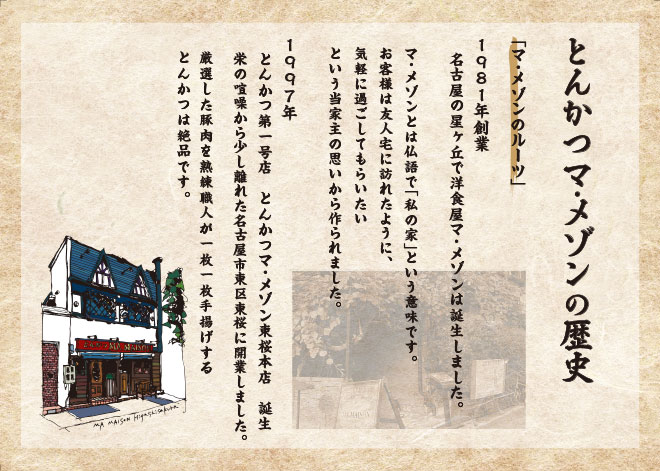 とんかつマ・メゾンの歴史
「マ・メゾンのルーツ」
1981年創業
名古屋の星ヶ丘で洋食屋マ・メゾンは誕生しました。
マ・メゾンとは仏語で「私の家」という意味です。
お客様は友人宅に訪れたように、
気軽に過ごしてもらいたい
という当家主の思いから作られました。
1997年
とんかつ第一号店　とんかつマ・メゾン東桜本店　誕生
栄の喧噪から少し離れた名古屋市東区東桜に開業しました。
厳選した豚肉を熟練職人が一枚一枚手揚げする
とんかつは絶品です。
MA MAISON
MA MAISON Higashisakura